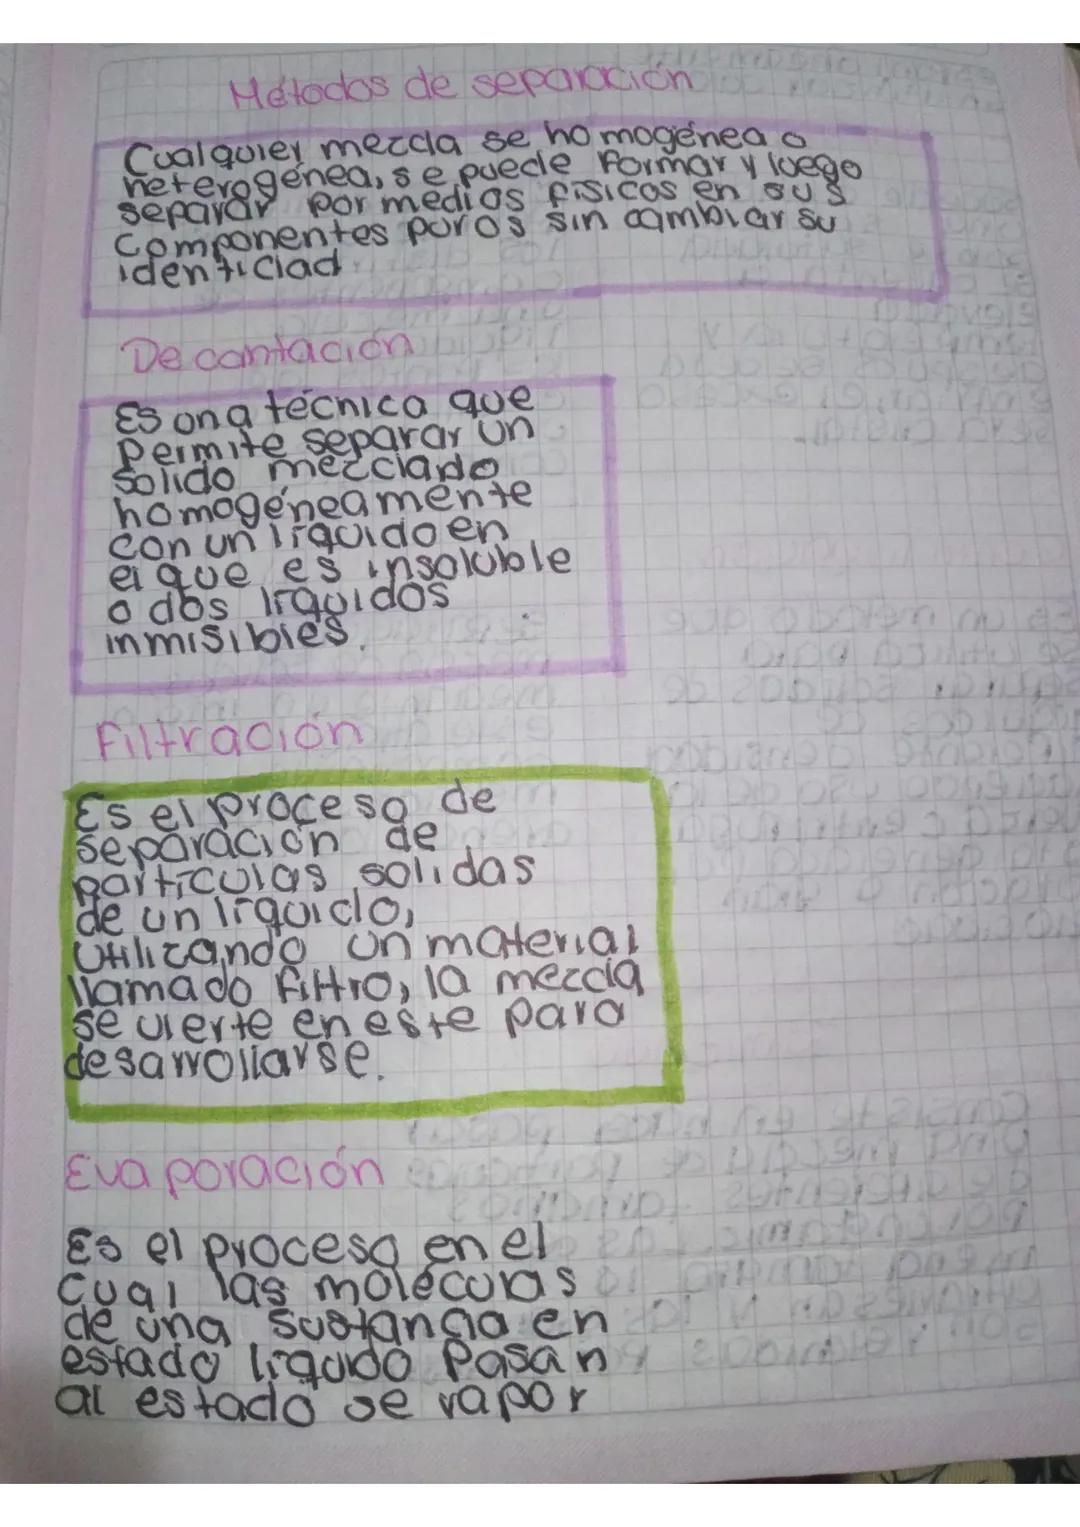 Métodos de separación
Cualquier mezcla se homogénea o
heterogénea, se puede formar y luego
separar por medios físicos en sus
componentes puros sin cambiar su
identidad
Decantación
Es una técnica que
permite separar un
solido mezclado
homogéneamente
con un líquido en
el que es insoluble
o dos líquidos
inmisibles.
Filtración
Es el proceso de
separación de
partículas solidas
de un líquido,
utilizando un material
llamado filtro, la mezcla
se vierte en este para
desarrollarse.
Evaporación
Es el proceso en el
cual las moléculas
de una sustancia en
estado líquido pasan
al estado de vapor